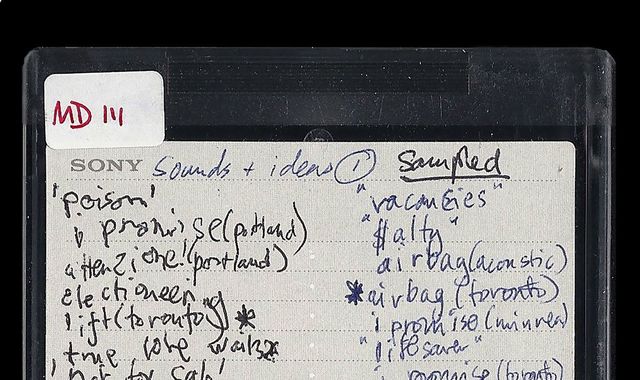 MD 111
SONY sounds + ideas ① sampled
'poison'
i promise (portland)
attenzione! (portland)
electioneering
lift (toronto) *
true love waits
'not for sale'
"vacancies"
"$alty"
airbag (acoustic)
* airbag (toronto)
i promise (minnea)
"lifesaver"
i promise (toronto)